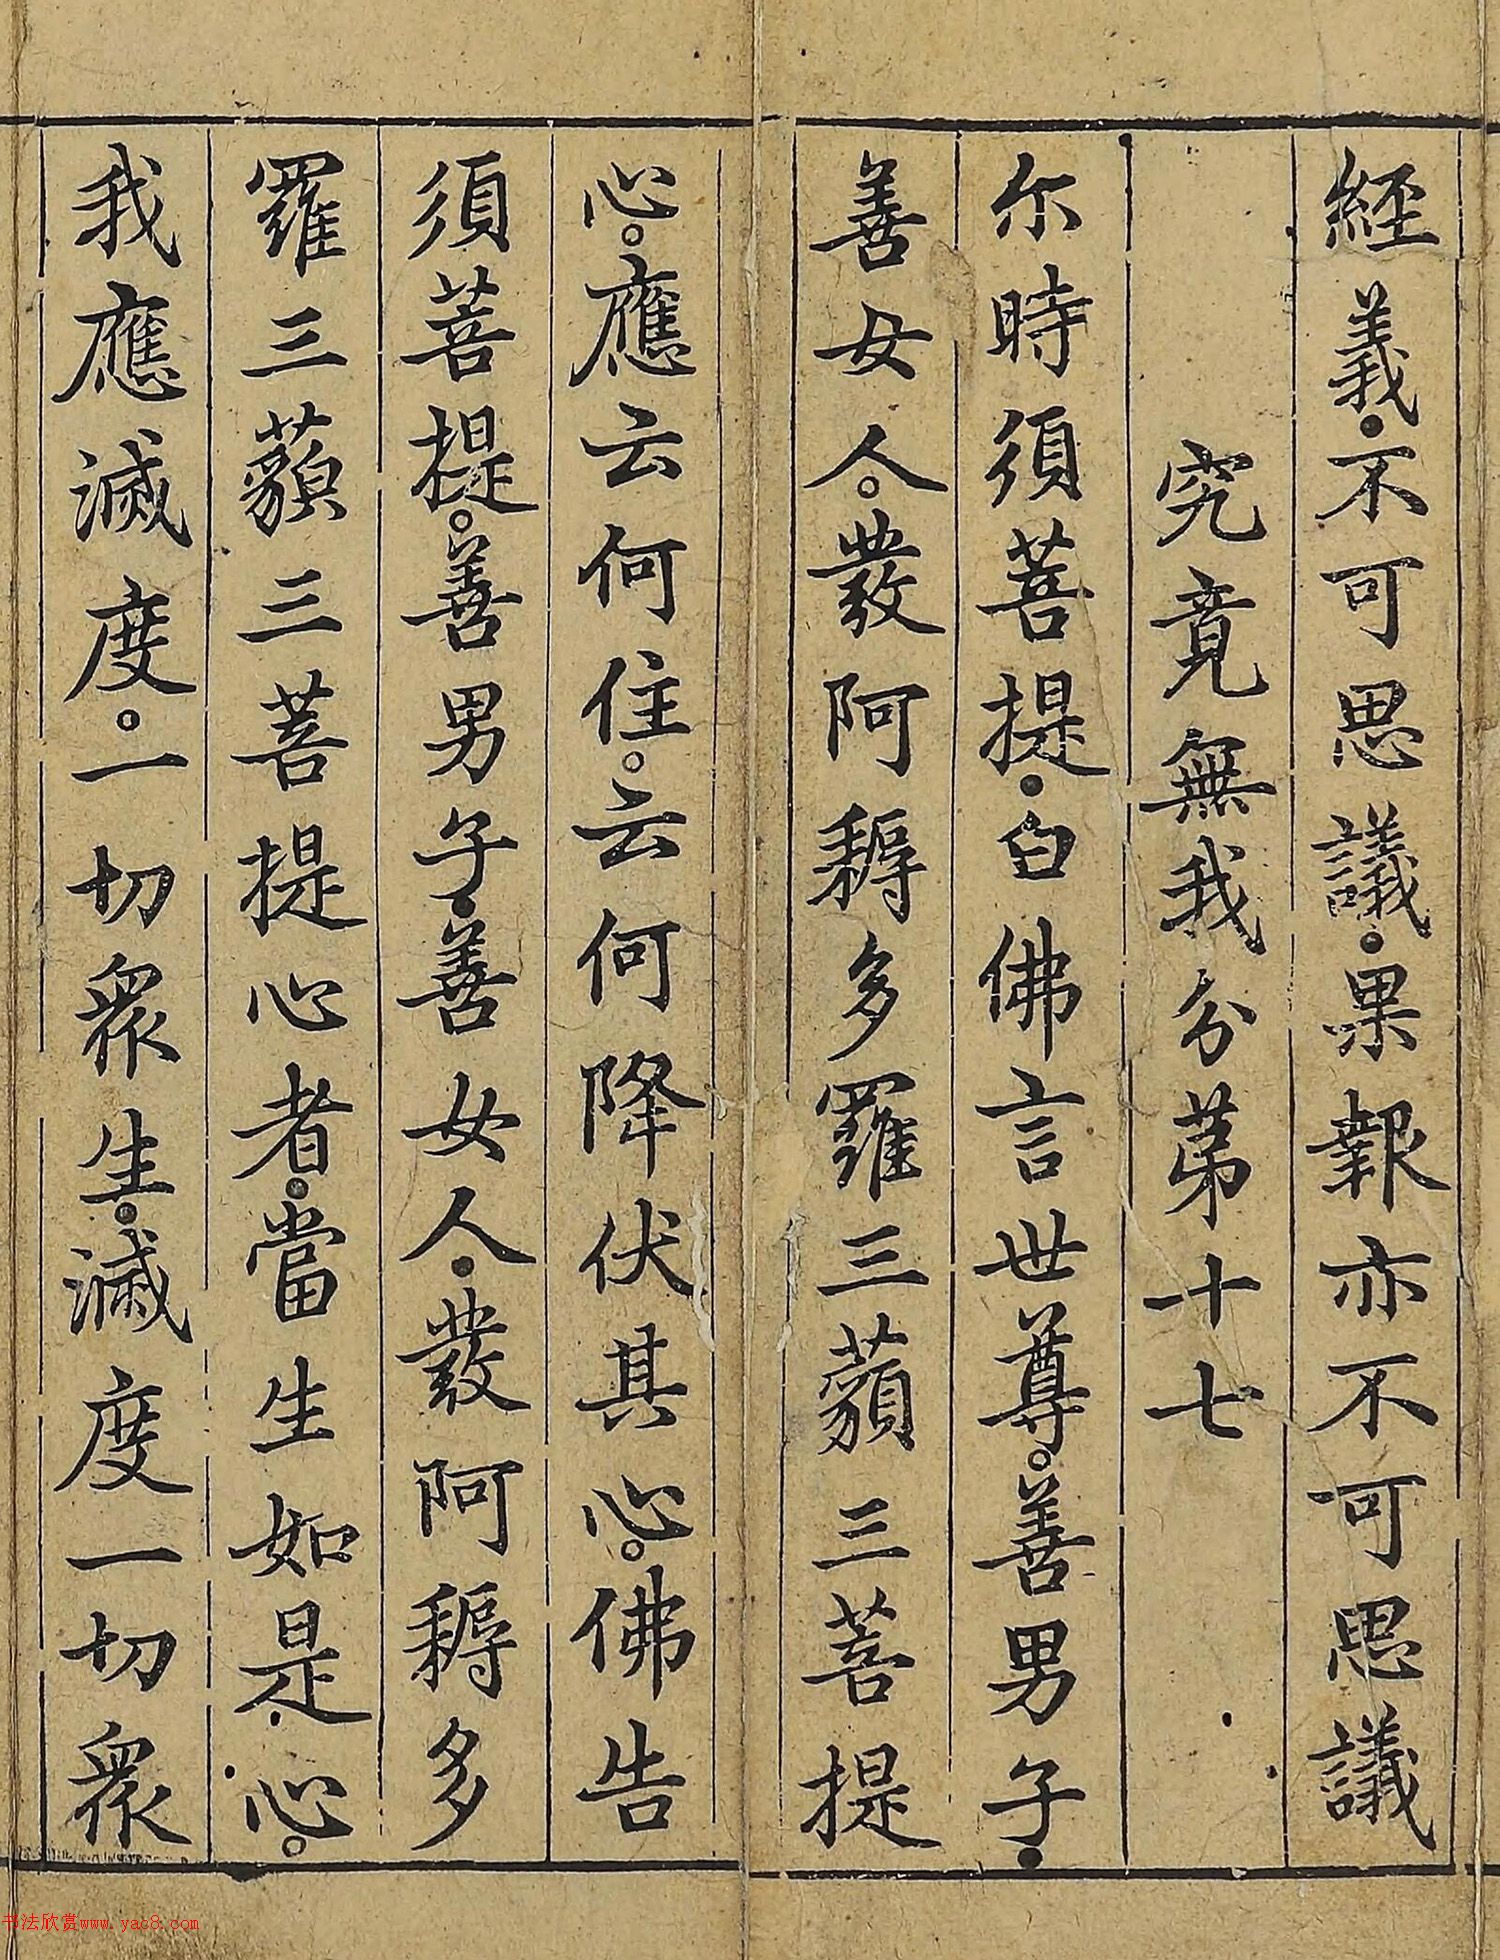 經義不可思議果報亦不可思議
究竟無我分第十七
尒時須菩提白佛言世尊善男子
善女人發阿耨多羅三藐三菩提
心應云何住云何降伏其心佛告
須菩提善男子善女人發阿耨多
羅三藐三菩提心者當生如是心
我應滅度一切衆生滅度一切衆
书法欣赏www.yac8.com